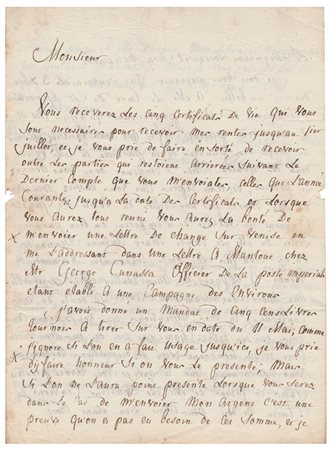 Monsieur
Vous receverez Les Cinq Certificats De Vie qui Vous
sont necessaire pour recevoir mes rentes jusquau 1ier
juillet, et je vous prie de faire ensorte de recevoir
outre Les parties qui restoient Arrierées Suivant Le
Dernier Compte que Vous m'envoiates, Celles que L'année
Courante jusqu'a La date Des Certificats et Lorsque
Vous Aurez tout reuni Vous Aurez La bonté De
m'envoier une Lettre De Change Sur Venise en
me L'addressant dans une Lettre A Mantoue Chez
Mr George Cunassa Officier De La poste imperiale
etant etabli A une Campagne Des Environs
J'avois donné un Mandat de Cinq Cens Livres
tournois A tirer Sur vous en date du 11 Mai, Comme
j'ignore Si L'on en a fait Usage jusqu'ici, je Vous prie
d'y faire honneur Si on Vous Le presente; Mais
Si L'on ne L'aura point presenté Lorsque Vous Serez
dans Le Cas de m'envoier Mon Argent C'est une
preuve qu'on a pas eu besoin de Cette Somme, et je